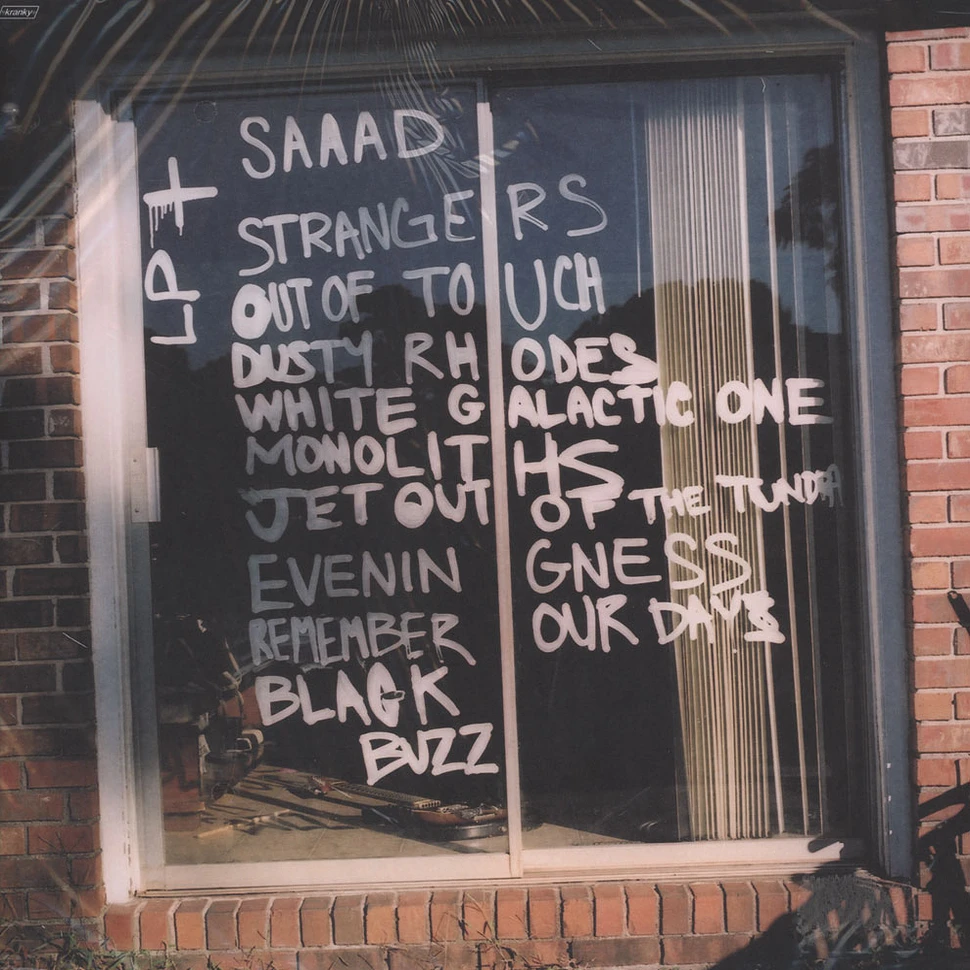 kranky
SAAAD
LP4
STRANGERS
OUT OF TOUCH
DUSTY RHODES
WHITE GALACTIC ONE
MONOLITHS
JET OUT OF THE TUNDRA
EVENINGNESS
REMEMBER OUR DAYS
BLACK
BUZZ